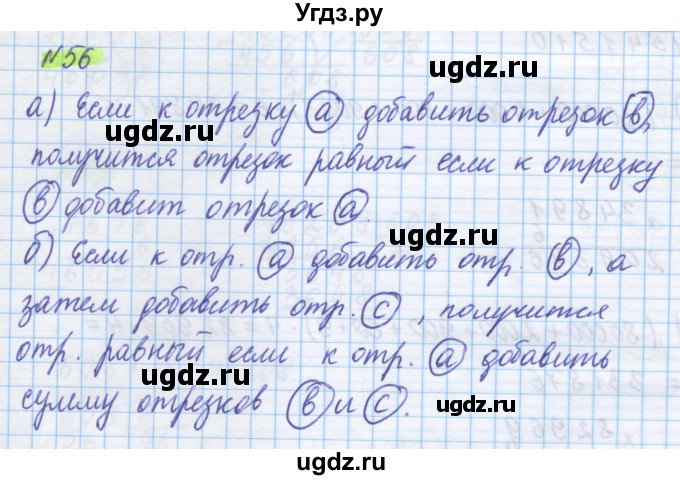 Угдз.ру
№56
ugdz.ru ugdz.ru
а) Если к отрезку а добавить отрезок в,
получится отрезок равный если к отрезку
в добавит отрезок а.
ugdz.ru
б) Если к отр. а добавить отр. в, а
затем добавить отр. с, получится
отр. равный если к отр. а добавить
ugdz.ru
сумму отрезков в и с.
ugdz.ru
ugdz.ru